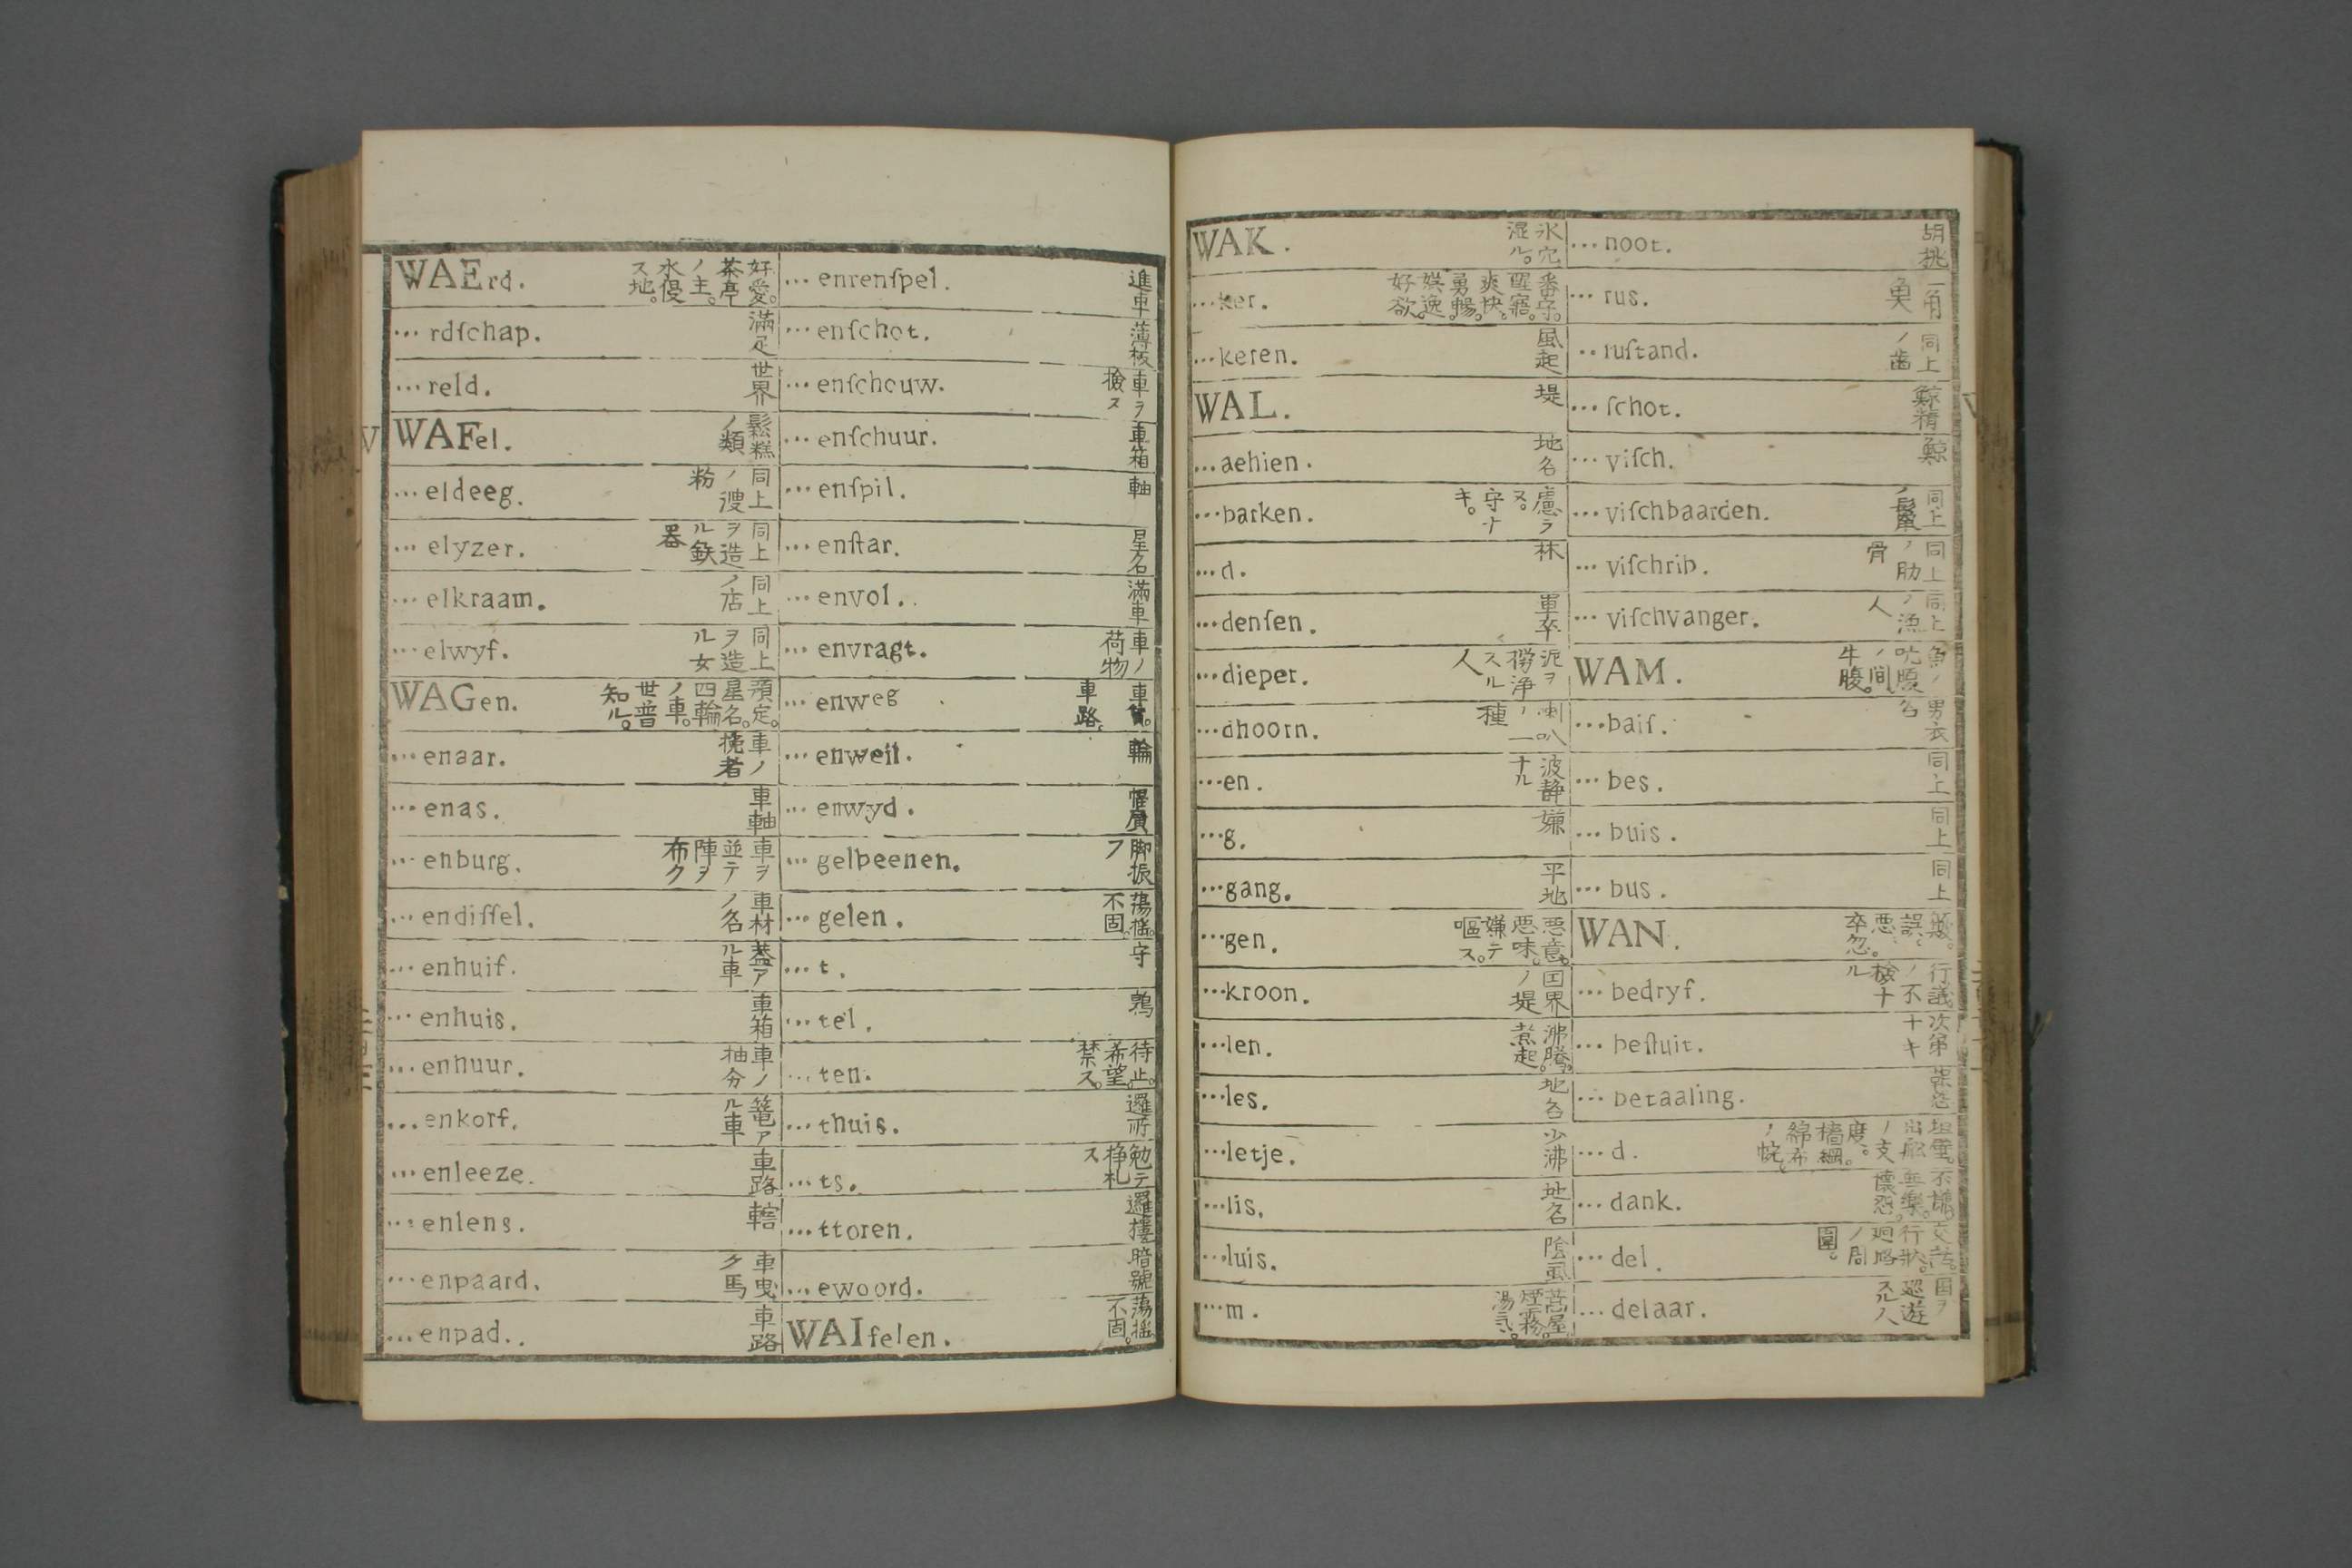 WAErd. 好愛。茶亭ノ主。水侵ス地。
… rdſchap. 滿足
… reld. 世界
WAFel. 鬆糕ノ類
… eldeeg. 同上ノ溲粉
… elyzer. 同上ヲ造ル鉄器
… elkraam. 同上ノ店
… elwyf. 同上ヲ造ル女
WAGen. 預定。星名。四輪ノ車。世普知ル。
… enaar. 車ノ挽者
… enas. 車軸
… enburg. 車ヲ並テ陣ヲ布ク
… endiſſel. 車材ノ名
… enhuif. 蓋アル車
… enhuis. 車箱
… enhuur. 車ノ抽分
… enkorf. 篭アル車
… enleeze. 車路
… enlens. 轄
… enpaard. 車曳ク馬
… enpad. 車路
… enrenſpel. 進車
… enſchot. 薄板
… enſchouw. 車ヲ撿ス
… enſchuur. 車箱
… enſpil. 軸
… enſtar. 星名
… envol. 滿車
… envragt. 車ノ荷物
… enweg 車路。
… enweil. 輪
… enwyd. 廣
… gelbeenen. 脚振フ
… gelen. 蕩揺。不固。
… t. 守
… tel. 鶉
… ten. 待止。希望。禁ス。
… thuis. 邏所
… ts. 勉テ札ス
… ttoren. 邏樓
… ewoord. 暗號
WAIfelen. 蕩揺。不固。
WAK. 氷穴。湿ル。
… ker. 番守。醒寤。爽快。勇暢。娯逸。好欲。
… keren. 風起
WAL. 堤
… aehien. 地名
… barken. 慮ラス。守ナキ。
… d. 林
… denſen. 軍卒
… dieper. 泥ヲ撈浄スル人
… dhoorn. 喇叭ノ一種
… en. 波静ナル
… g. 嫌
… gang. 平地
… gen. 悪意。悪味。嫌テ嘔ス。
… kroon. 国界ノ堤
… len. 沸騰。煮起。
… les. 地名
… letje. 少沸
… lis. 地名
… luis. 陰虱
… m. 煙霧。湯気。
… noot. 胡桃
… rus. 一角魚
… ruſtand. 同上ノ歯
… ſchot. 鯨精
… viſch. 鯨
… viſchbaarden. 同上ノ鬣
… viſchrib. 同上ノ肋骨
… viſchvanger. 同上ノ漁人
WAM. 魚ノ間 牛腹。
… baiſ. 男衣名
… bes. 同上
… buis. 同上
… bus. 同上
WAN. 誤。悪。卒忽。
… bedryf. 行議ノ不撿ナル
… beſtuit. 次第ナキ
… betaaling.
… d. ノ支度。檣綱。綿布ノ
… dank. 懐怨。
… del. 行狀。廻路ノ周圍。
… delaar. 国ヲ巡遊スル人